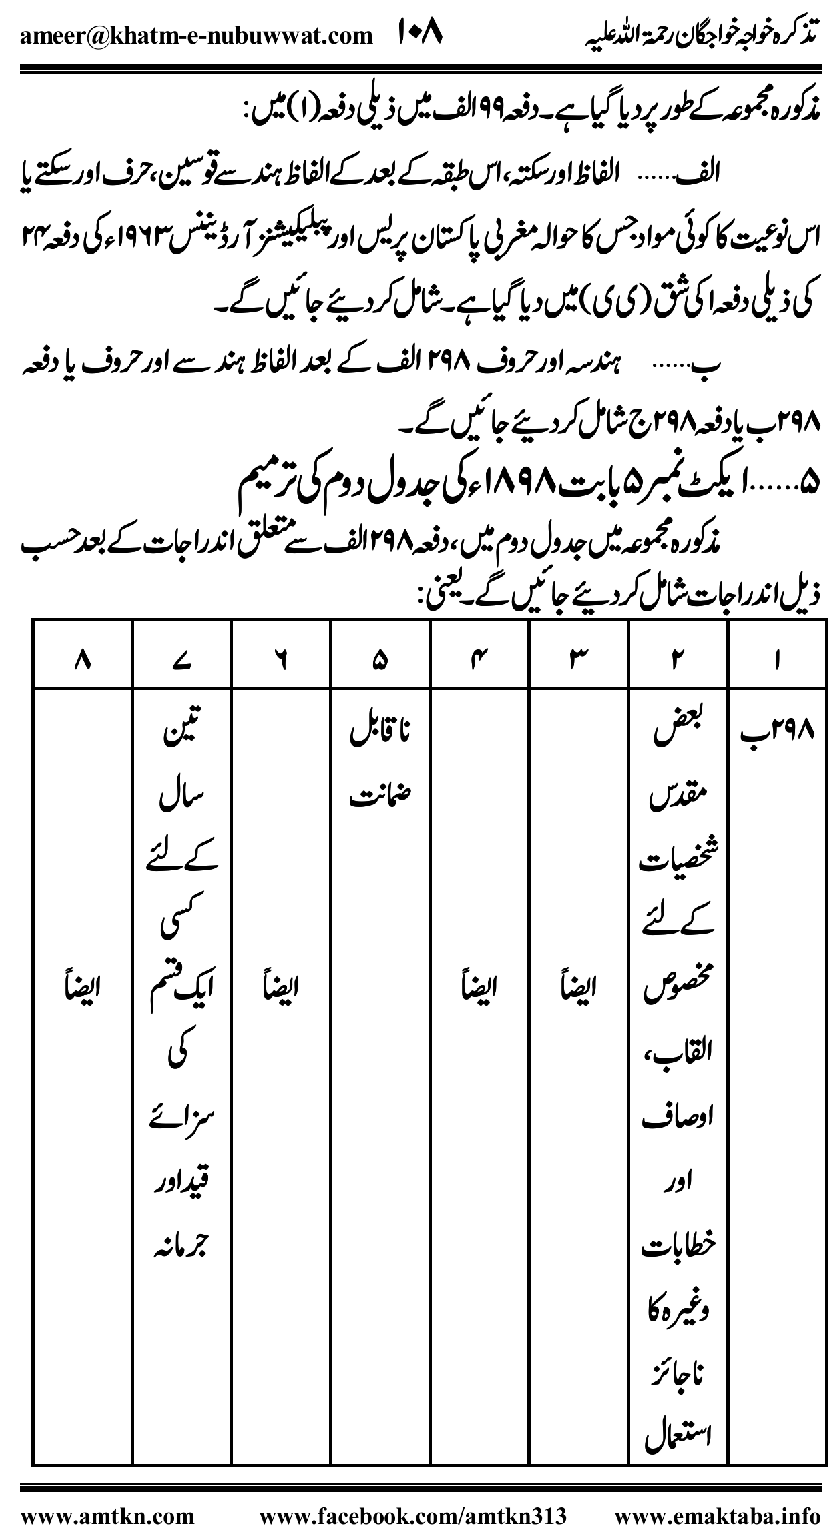 تذکرہ خواجہ خواجگان رحمۃ اللہ علیہ ۱۰۸ ameer@khatm-e-nubuwwat.com
مذکورہ مجموعہ کے طور پر دیا گیا ہے۔ دفعہ ۹۹ الف میں ذیلی دفعہ (۱) میں:
الف...... الفاظ اور سکتہ، اس طبقہ کے بعد کے الفاظ ہندسے قوسین، حرف اور سکتے یا
اس نوعیت کا کوئی مواد جس کا حوالہ مغربی پاکستان پریس اور پبلیکیشنز آرڈیننس ۱۹۶۳ء کی دفعہ ۲۴
کی ذیلی دفعہ ا کی شق (ی ی) میں دیا گیا ہے۔ شامل کر دیئے جائیں گے۔
ب...... ہندسہ اور حروف ۲۹۸ الف کے بعد الفاظ ہندسے اور حروف یا دفعہ
۲۹۸ب یا دفعہ ۲۹۸ج شامل کر دیئے جائیں گے۔
۵...... ایکٹ نمبر ۵ بابت ۱۸۹۸ء کی جدول دوم کی ترمیم
مذکورہ مجموعہ میں جدول دوم میں، دفعہ ۲۹۸ الف سے متعلق اندراجات کے بعد حسب
ذیل اندراجات شامل کر دیئے جائیں گے۔ یعنی:
۱ ۲ ۳ ۴ ۵ ۶ ۷ ۸
۲۹۸ب
بعض
مقدس
شخصیات
کے لئے
مخصوص
القاب،
اوصاف
اور
خطابات
وغیرہ کا
ناجائز
استعمال
ایضاً
ایضاً
ناقابل
ضمانت
ایضاً
تین
سال
کے لئے
کسی
ایک قسم
کی
سزائے
قید اور
جرمانہ
ایضاً
www.amtkn.com www.facebook.com/amtkn313 www.emaktaba.info